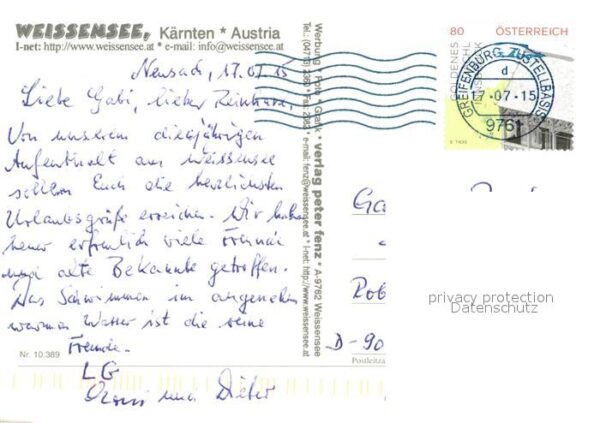 WEISSENSEE, Kärnten * Austria
I-net: http://www.weissensee.at * e-mail: info@weissensee.at
Neusach, 17.07.15
Liebe Gabi, lieber Reinhard,
Von unserem diesjährigen
Aufenthalt am Weissensee
sollen Euch die herzlichsten
Urlaubsgrüße erreichen. Wir haben
heuer erfreulich viele Freunde
und alte Bekannte getroffen.
Das Schwimmen im angenehm
warmen Wasser ist die reine
Freude.
LG
und Dieter
Nr. 10.389
Werbung * Foto * Grafik * verlag peter fenz * A-9762 Weissensee
80 ÖSTERREICH
GOLDENES
GREIFENBURG ZUSTELLBASIS
d
17-07-15
976
Ga
Rob
D-90
Postleitza
privacy protection
Datenschutz